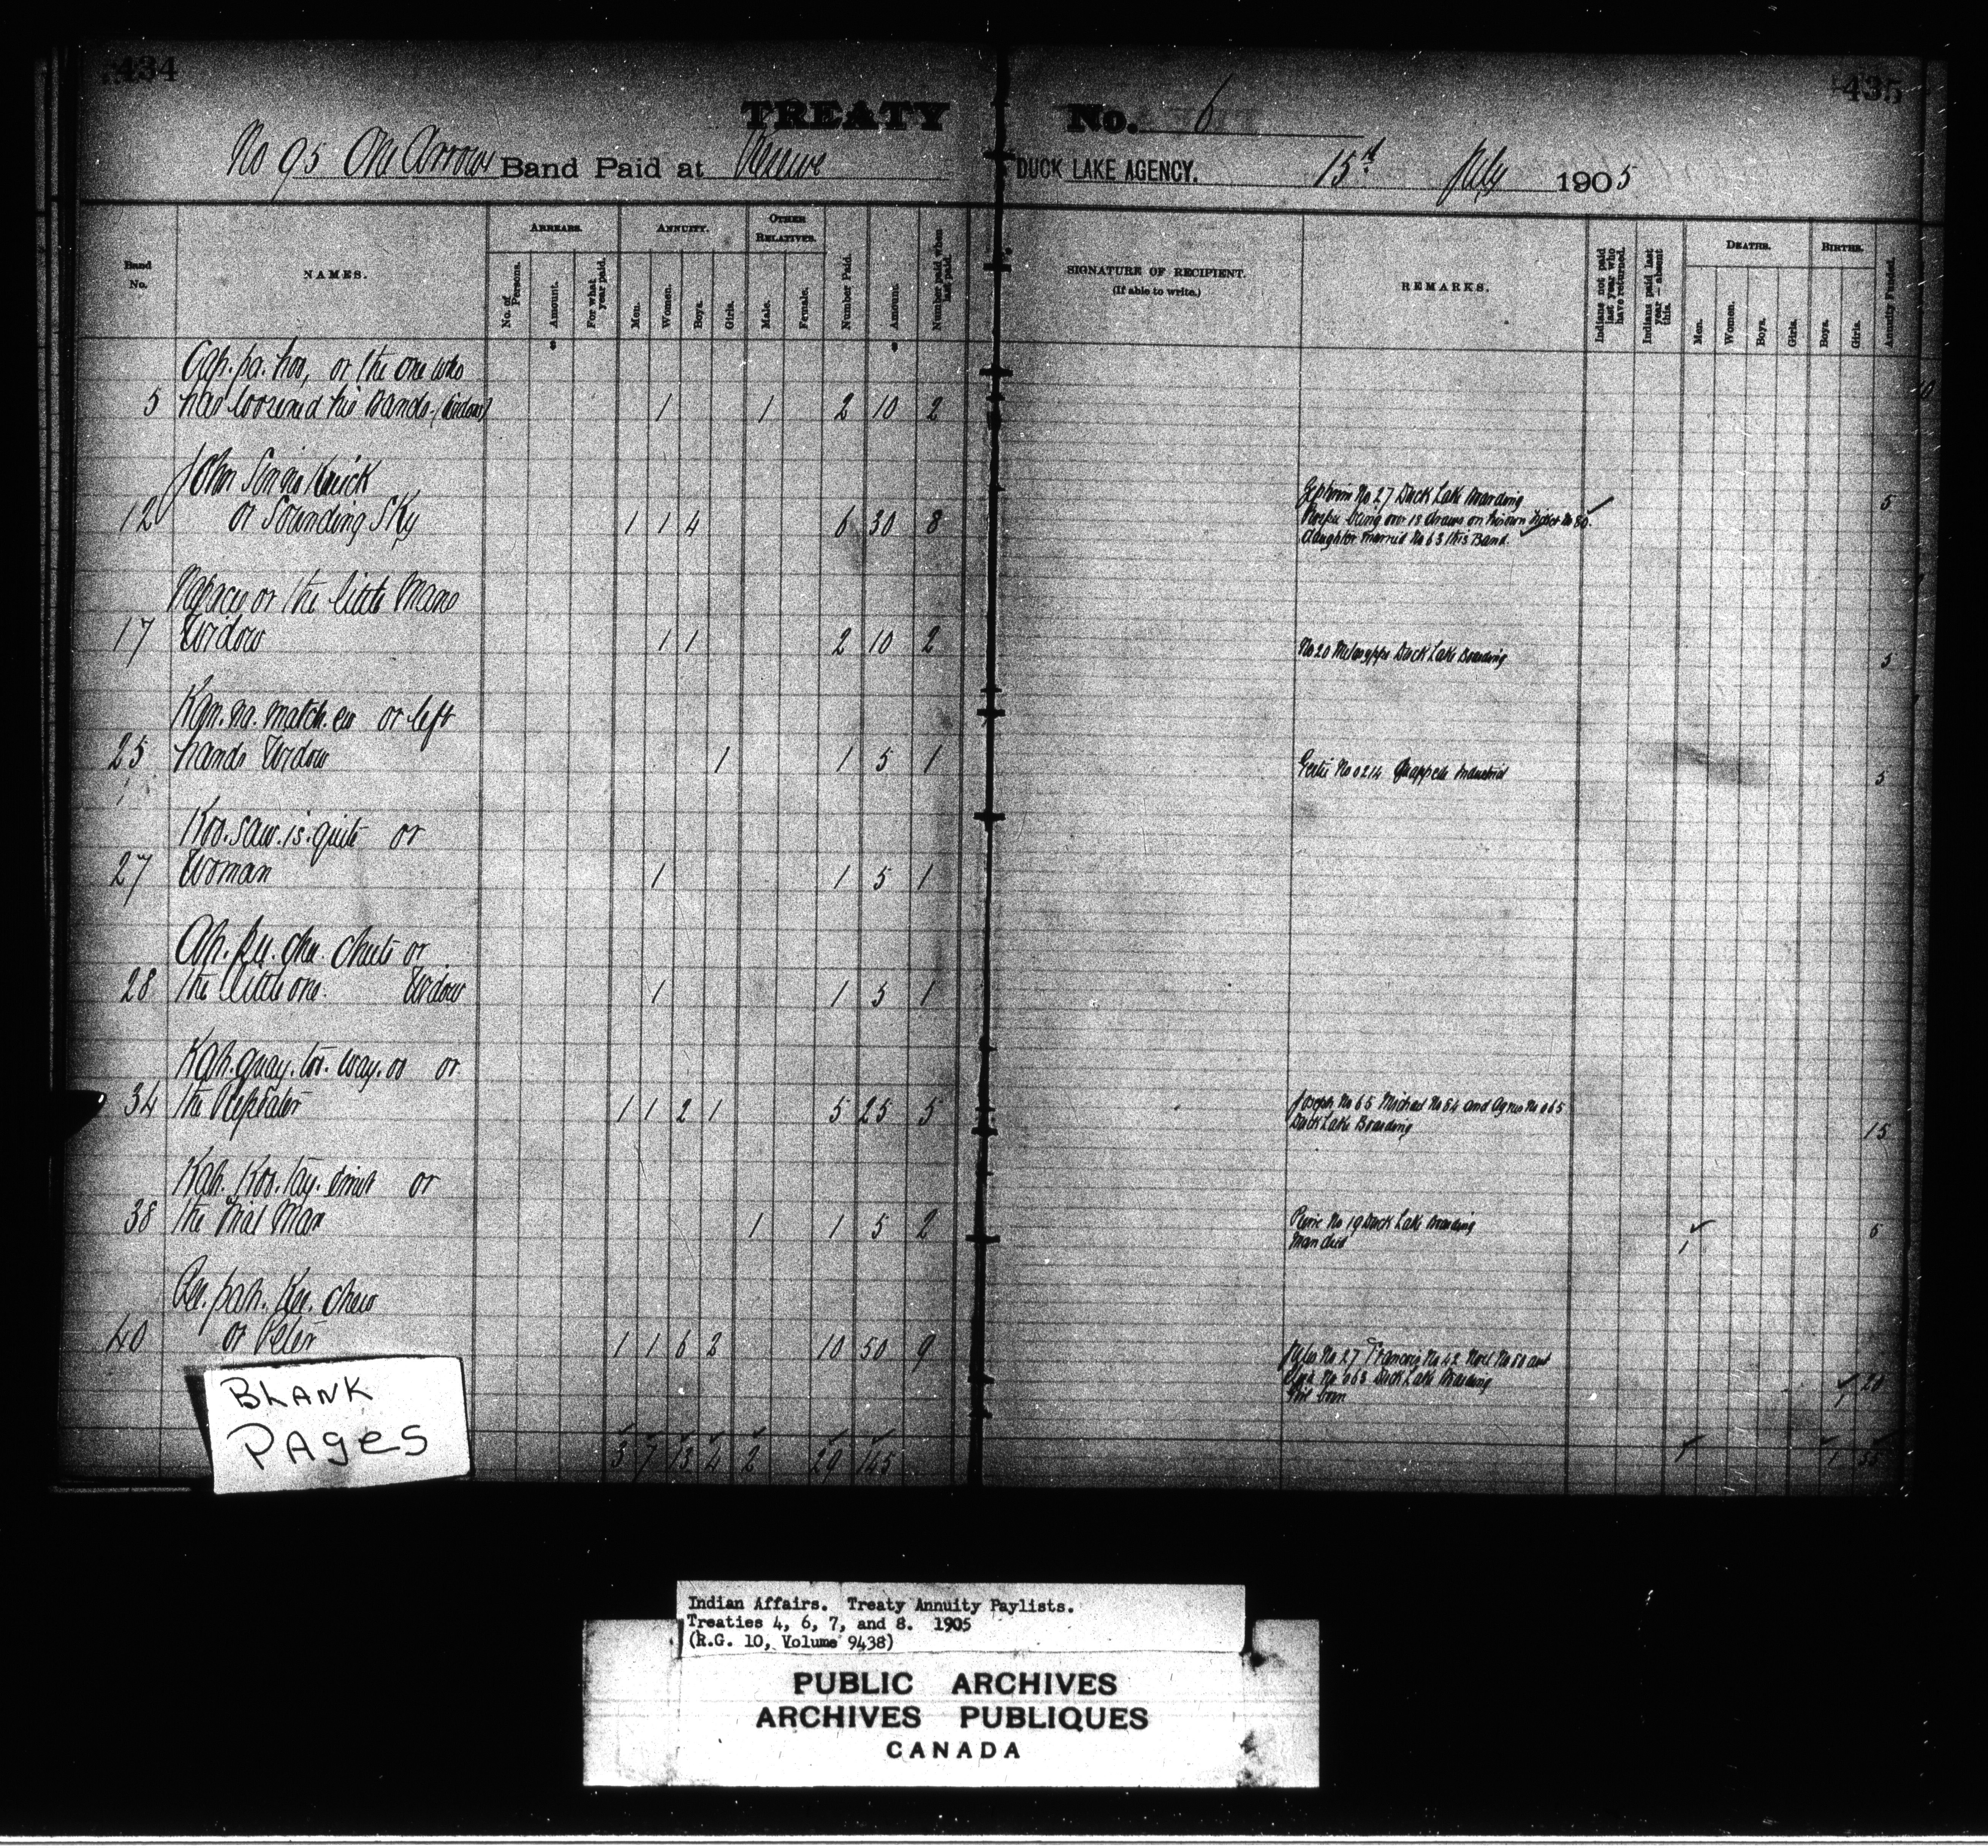 434
435
TREATY No. 6
No 95 One Arrows Band Paid at Reserve DUCK LAKE AGENCY. 15th July 1905
Band No.
NAMES.
ARREARS.
No. of Persons.
Amount.
For what year paid.
ANNUITY.
Men.
Women.
Boys.
Girls.
OTHER RELATIVES.
Male.
Female.
Number Paid.
Amount.
Number paid when last paid.
SIGNATURE OF RECIPIENT.
(If able to write.)
REMARKS.
Indians not paid last year who have returned.
Indians paid last year — absent this.
DEATHS.
Men.
Women.
Boys.
Girls.
BIRTHS.
Boys.
Girls.
Annuity Funded.
Ap. pa. hoo, or the one who
5 has loosened his Bands (Widow) 1 1 2 10 2
John
12 or Sounding Sky 1 1 4 6 30 8
No 27 Duck Lake Boarding 5
being over 18 draws on his own ticket No 80.
daughter married No 63 this Band.
Napacis or the little Mans
17 Widow 1 1 2 10 2
No 20 Duck Lake Boarding 5
Kan. na. match. ew or left
25 hands Widow 1 1 5 1
Gertie No 0214 Quappelle Industrial 5
Koo. saw. is. quite or
27 Woman 1 1 5 1
Ah. pu. chu. chuts or
28 the little one. Widow 1 1 5 1
Kah. quay. too. way. oo or
34 the Repeater 1 1 2 1 5 25 5
Joseph No 65 Michael No 64 and Agnes No 065
Duck Lake Boarding 15
Kah. Koo. tay. or
38 the Man 1 1 5 2
Pierre No 19 Duck Lake Boarding 5
Man died 1
Pee. pah. Kee. chew
40 or Peter 1 1 6 2 10 50 9
Jules No 27 Francois No 42 Noel No 60 and
No 063 Duck Lake Boarding 20
Girl born 1
3 7 13 4 2 29 145 1 1 55
BLANK
PAgeS
Indian Affairs. Treaty Annuity Paylists.
Treaties 4, 6, 7, and 8. 1905
(R.G. 10, Volume 9438)
PUBLIC ARCHIVES
ARCHIVES PUBLIQUES
CANADA